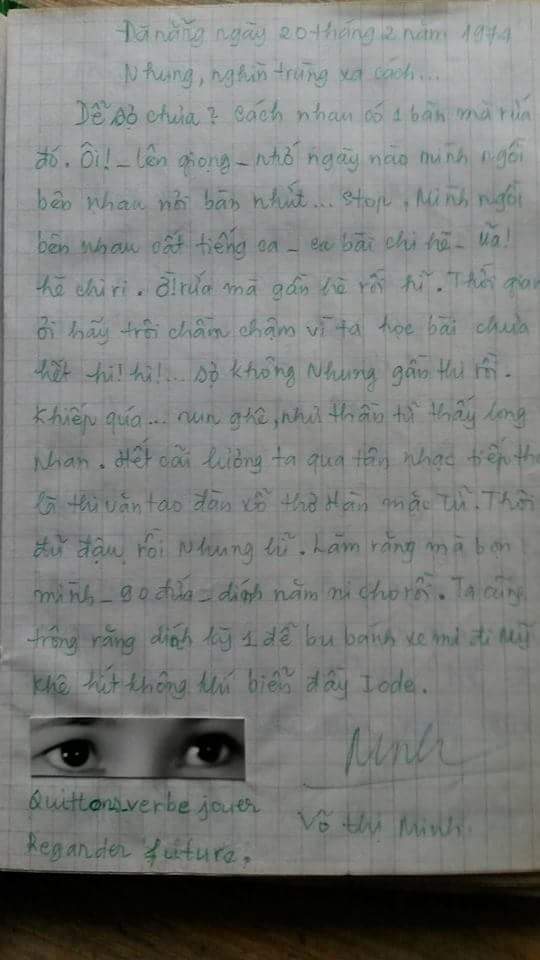 Đà nẵng ngày 20 tháng 2 năm 1974
Nhung, nghìn trùng xa cách...
Dễ sợ chưa? Cách nhau có 1 bàn mà rứa
đó. Ôi! - lên giọng - nhớ ngày nào mình ngồi
bên nhau nơi bàn nhứt... Stop, Mình ngồi
bên nhau cất tiếng ca - ca bài chi hè - Ừa!
hè chi ri. Ờ! rứa mà gần hè rồi hỉ. Thời gian
ơi hãy trôi chầm chậm vì ta học bài chưa
hết hi! hi!... Sợ không Nhung gần thi rồi.
Khiếp quá... run ghê, như thần tử thấy long
nhan. Hết cải lương ta qua tân nhạc tiếp theo
là thi văn tao đàn xổ thơ Hàn mặc Tử. Thôi
đủ đậu rồi Nhung hỉ. Làm răng mà bọn
mình - 90 đứa - dính năm ni cho rồi. Ta cũng
trông răng dính kỳ 1 để bu bánh xe mi đi Mỹ
Khê hít không khí biển đầy Iode.
Minh
Quittons verbe jouer
Võ thị Minh.
Regarder future.